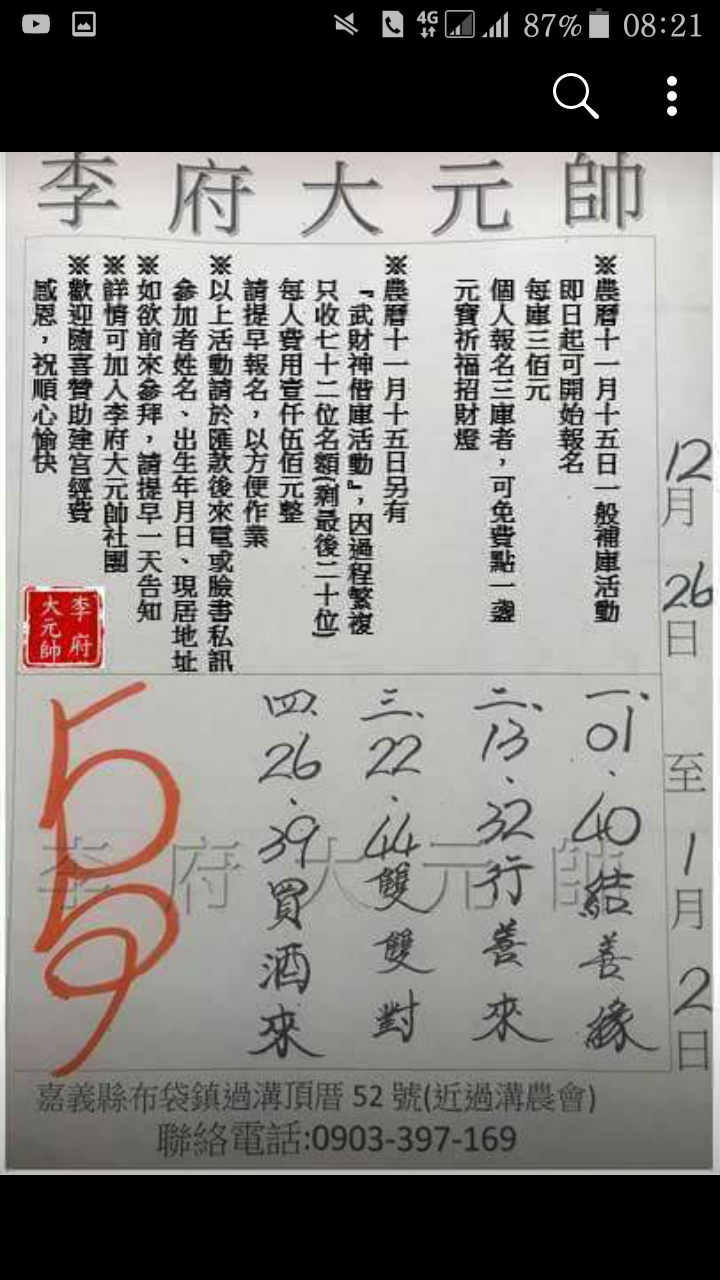 4G 87% 08:21
李府大元帥
※農曆十一月十五日一般補庫活動
即日起可開始報名
每庫三佰元
個人報名三庫者，可免費點一盞
元寶祈福招財燈
※農曆十一月十五日另有
『武財神借庫活動』，因過程繁複
只收七十二位名額(剩最後二十位)
每人費用壹仟伍佰元整
請提早報名，以方便作業
※以上活動請於匯款後來電或臉書私訊
參加者姓名、出生年月日、現居地址
※如欲前來參拜，請提早一天告知
※詳情可加入李府大元帥社團
※歡迎隨喜贊助建宮經費
感恩，祝順心愉快
李府
大元帥
12月26日至1月2日
一、01.40結善緣
二、13.32行善來
三、22.44雙雙對
四、26.39買酒來
李府大元帥
嘉義縣布袋鎮過溝頂厝 52 號(近過溝農會)
聯絡電話:0903-397-169